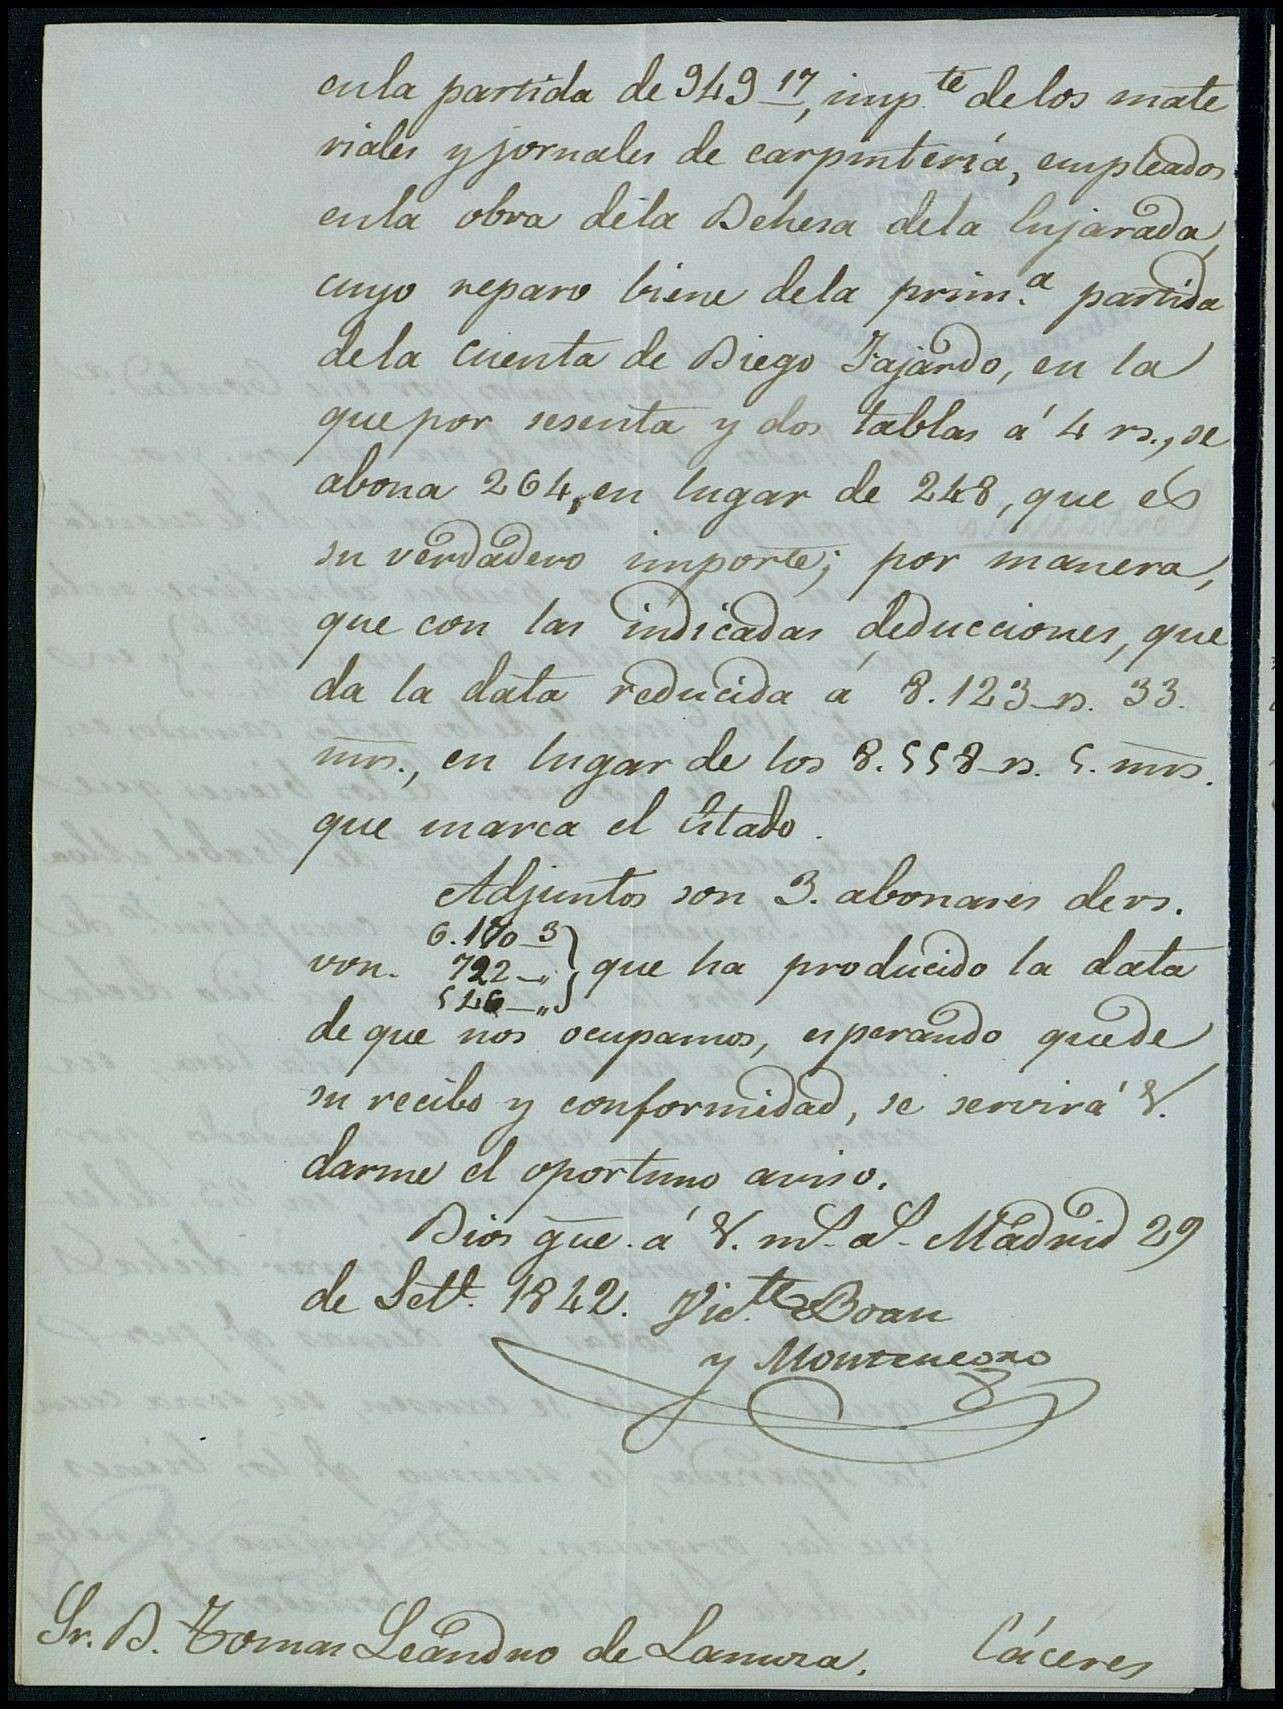 en la partida de 949 17, imp.te de los mate
riales y jornales de carpinteria, empleados
en la obra de la Dehesa de la Lujarada,
cuyo reparo biene de la prim.a partida
de la cuenta de Diego Fajardo, en la
que por sesenta y dos tablas á 4 rs., se
abona 264, en lugar de 248, que es
su verdadero importe; por manera,
que con las indicadas deducciones, que
da la data reducida a 8.123 rs. 33.
mrs., en lugar de los 8.558 rs. 5. mrs.
que marca el Estado.
Adjuntos son 3. abonares de rs.
6.180 3
von. 722 " que ha producido la data
546 "
de que nos ocupamos, esperando quede
su recibo y conformidad, se servirá V.
darme el oportuno aviso.
Dios gue. á V. ms. as. Madrid 29
de Sete. 1842. Vic.te Boan
y Montenegro
Sr. D. Tomas Leandro de Lamura. Cáceres